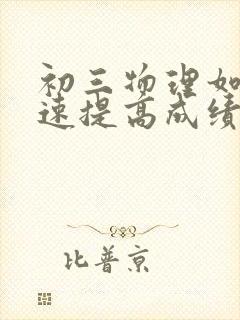 初三物理如
速提高成绩
比普京